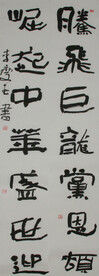 騰飛巨龍黨恩頌
崛起中華盛世迎
李慶書